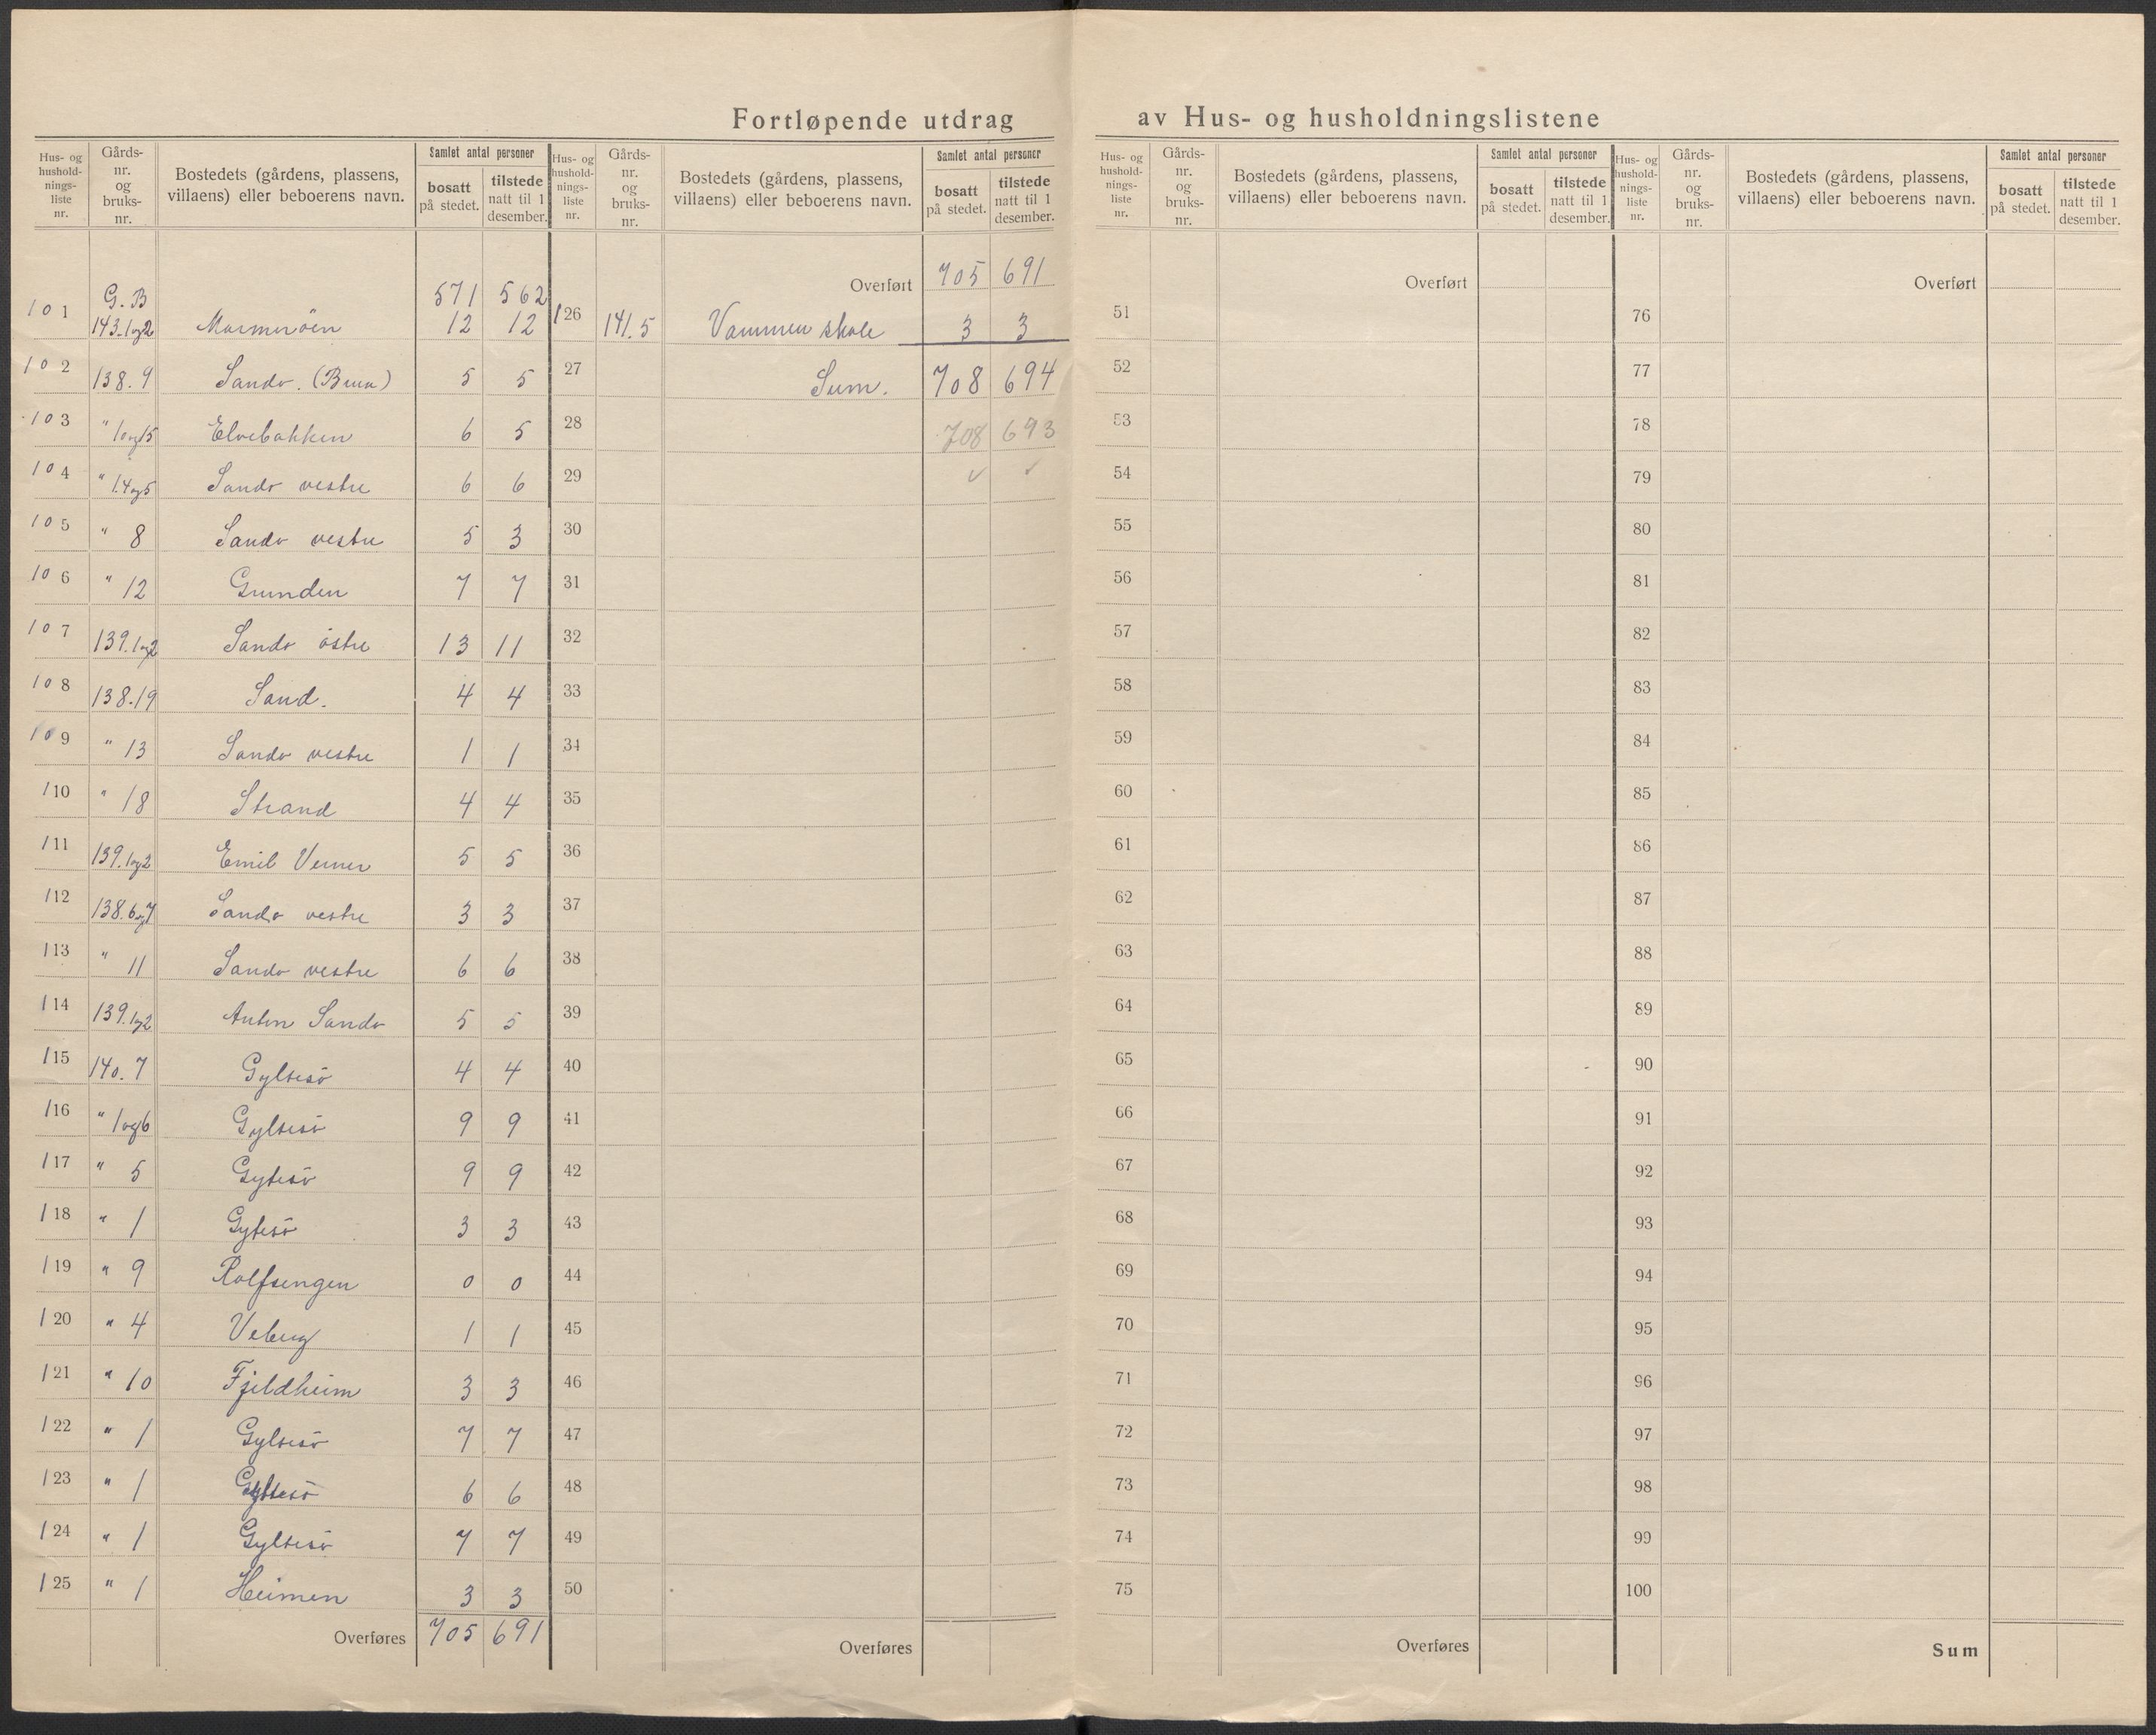 Fortløpende utdrag av Hus- og husholdningslistene
Hus- og hushold- nings- liste nr. Gårds- nr. og bruks- nr. Bostedets (gårdens, plassens, villaens) eller beboerens navn. Samlet antal personer bosatt på stedet. tilstede natt til 1 desember.
Hus- og hushold- nings- liste nr. Gårds- nr. og bruks- nr. Bostedets (gårdens, plassens, villaens) eller beboerens navn. Samlet antal personer bosatt på stedet. tilstede natt til 1 desember.
Hus- og hushold- nings- liste nr. Gårds- nr. og bruks- nr. Bostedets (gårdens, plassens, villaens) eller beboerens navn. Samlet antal personer bosatt på stedet. tilstede natt til 1 desember.
Hus- og hushold- nings- liste nr. Gårds- nr. og bruks- nr. Bostedets (gårdens, plassens, villaens) eller beboerens navn. Samlet antal personer bosatt på stedet. tilstede natt til 1 desember.
G. B 571 562
101 143.1og2 12 12
102 138.9 Sandv. (Brua) 5 5
103 " 1og15 Elvebakken 6 5
104 " 1.4og5 Sandv vestre 6 6
105 " 8 Sandv vestre 5 3
106 " 12 Grunden 7 7
107 139.1og2 Sandv östre 13 11
108 138.19 Sand. 4 4
109 " 13 Sandv vestre 1 1
110 " 18 Strand 4 4
111 139.1og2 Emil Verner 5 5
112 138.6og7 Sandv vestre 3 3
113 " 11 Sandv vestre 6 6
114 139.1og2 Anton Sandv 5 5
115 140.7 Gyltesö 4 4
116 " 1og6 Gyltesö 9 9
117 " 5 Gytesö 9 9
118 " 1 Gytesö 3 3
119 " 9 Rolfsengen 0 0
120 " 4 1 1
121 " 10 Fjeldheim 3 3
122 " 1 Gyltesö 7 7
123 " 1 Gyltesö 6 6
124 " 1 Gyltesö 7 7
125 " 1 Heimen 3 3
Overføres 705 691
Overført 705 691
126 141.5 Vammen skole 3 3
27 Sum. 708 694
28 708 693
29 ✓ ✓
30
31
32
33
34
35
36
37
38
39
40
41
42
43
44
45
46
47
48
49
50
Overføres
Overført
51
52
53
54
55
56
57
58
59
60
61
62
63
64
65
66
67
68
69
70
71
72
73
74
75
Overføres
Overført
76
77
78
79
80
81
82
83
84
85
86
87
88
89
90
91
92
93
94
95
96
97
98
99
100
Sum